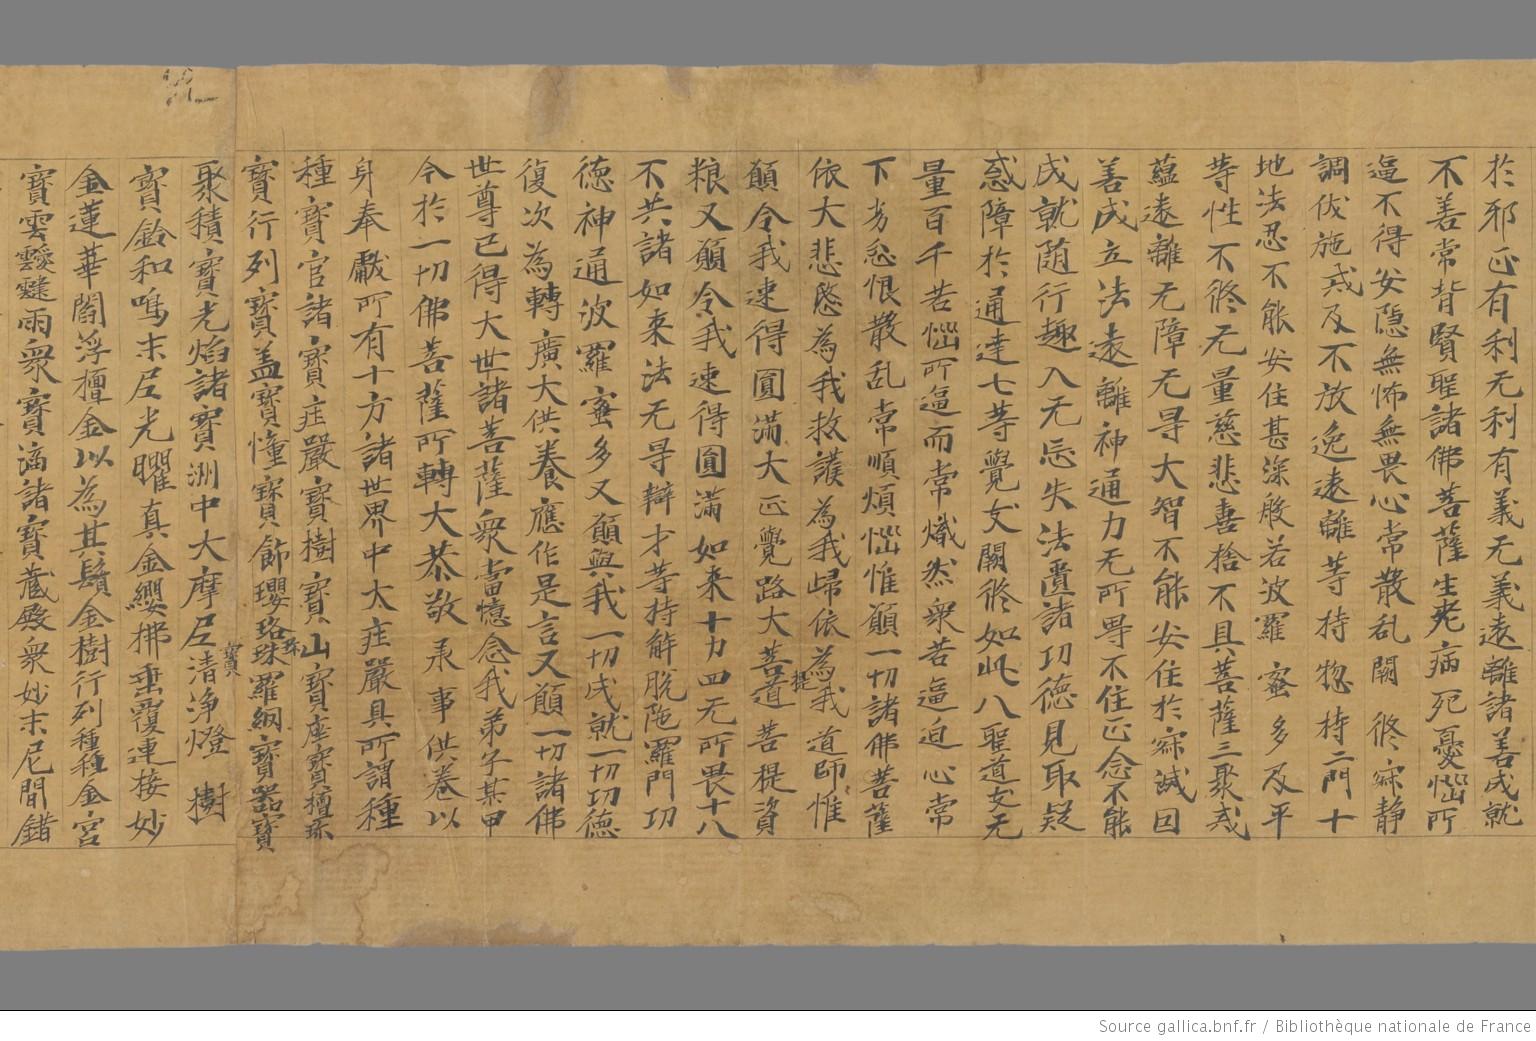 於邪正有利无利有義无義遠離諸善成就
不善常背賢聖諸佛菩薩生老病死憂惱所
逼不得安隱無怖無畏心常散乱闕修寂静
調伏施戒及不放逸遠離等持惣持二門十
地法忍不能安住甚深般若波羅蜜多及平
等性不修无量慈悲喜捨不具菩薩三聚戒
蘊遠離无障无导大智不能安住於寂滅因
善成立法遠離神通力无所畏不住正念不能
成就随行趣入无忘失法匱諸功德見取疑
惑障於通達七等覺支闕修如此八聖道支无
量百千苦惱所逼而常熾然衆苦逼迫心常
下劣忿恨散乱常順煩惱惟願一切諸佛菩薩
依大悲愍為我救護為我歸依為我道師惟
願令我速得圓滿大正覺路大菩提道菩提資
粮又願令我速得圓滿如来十力四无所畏十八
不共諸如来法无导辯才等持解脱陁羅門功
德神通波羅蜜多又願與我一切成就一切功德
復次為轉廣大供養應作是言又願一切諸佛
世尊已得大世諸菩薩衆當憶念我弟子某甲
今於一切佛菩薩所轉大恭敬承事供養以
身奉獻所有十方諸世界中大庄嚴具所謂種
種寶宫諸寶庄嚴寶樹寶山寶座寶擅珠
寶行列寶盖寶幢寶飾瓔珞珠羅網寶器寶
聚積寶光焰諸寶洲中大摩尼清浄燈樹
寶鈴和鳴末尼光曜真金纓拂垂覆連接妙
金蓮華閻浮檀金以為其鬚金樹行列種種金宮
寶雲靉靆雨衆寶滴諸寶蔵殿衆妙末尼間錯
Source gallica.bnf.fr / Bibliothèque nationale de France